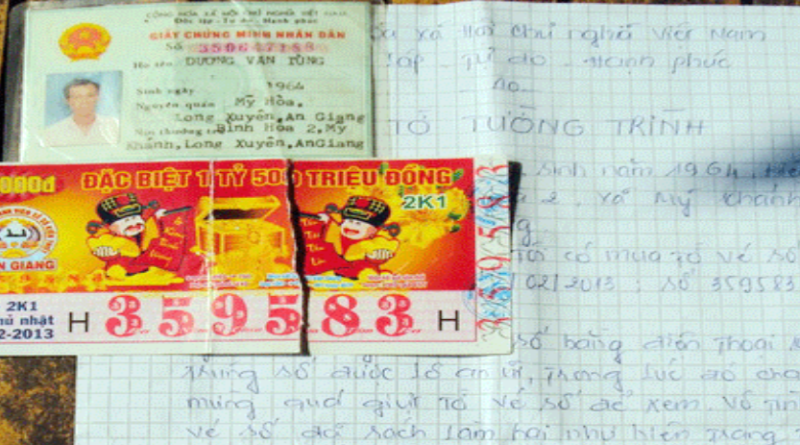 CỘNG HÒA XÃ HỘI CHỦ NGHĨA VIỆT NAM
Độc lập - Tự do - Hạnh phúc
GIẤY CHỨNG MINH NHÂN DÂN
Số 350647188
Họ tên DƯƠNG VĂN TÙNG
Sinh ngày 1964
Nguyên quán Mỹ Hòa,
Long Xuyên, An Giang
Nơi thường trú Bình Hòa 2, Mỹ
Khánh, Long Xuyên, AnGiang
000đ ĐẶC BIỆT 1 TỶ 500 TRIỆU ĐỒNG
2K1
N GIANG
2K1
hủ nhật
2-2013
H 359583 H
359583
xã Hội chủ nghĩa Việt Nam
lập - Tự do - Hạnh phúc
TỜ TƯỜNG TRÌNH
sinh năm 1964
2 xã Mỹ Khánh
Tôi có mua tờ vé số
/02/2013 : số 359583
số bằng điện thoại
trúng số được lô an ủi, trong lúc đó
mừng quá giựt tờ vé số để xem. Vô
vé số đã rách làm hai như hiện trạng